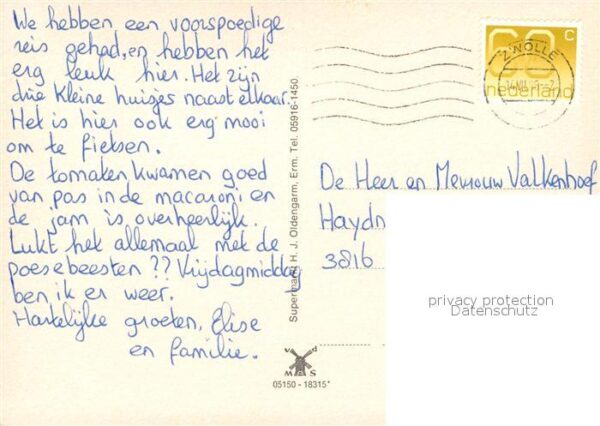 We hebben een voorspoedige
reis gehad, en hebben het
erg leuk hier. Het zijn
drie kleine huisjes naast elkaar.
Het is hier ook erg mooi
om te fietsen.
De tomaten kwamen goed
van pas in de macaroni en
de jam is overheerlijk.
Lukt het allemaal met de
poesebeesten ?? Vrijdagmiddag
ben ik er weer.
Hartelijke groeten, Elise
en familie.
Supermarkt H. J. Oldengarm, Erm. Tel. 05916-1450.
v d
M S
05150 - 18315*
60 c
nederland
ZWOLLE
De Heer en Mevrouw Valkenhoef
Haydn
3816
privacy protection
Datenschutz